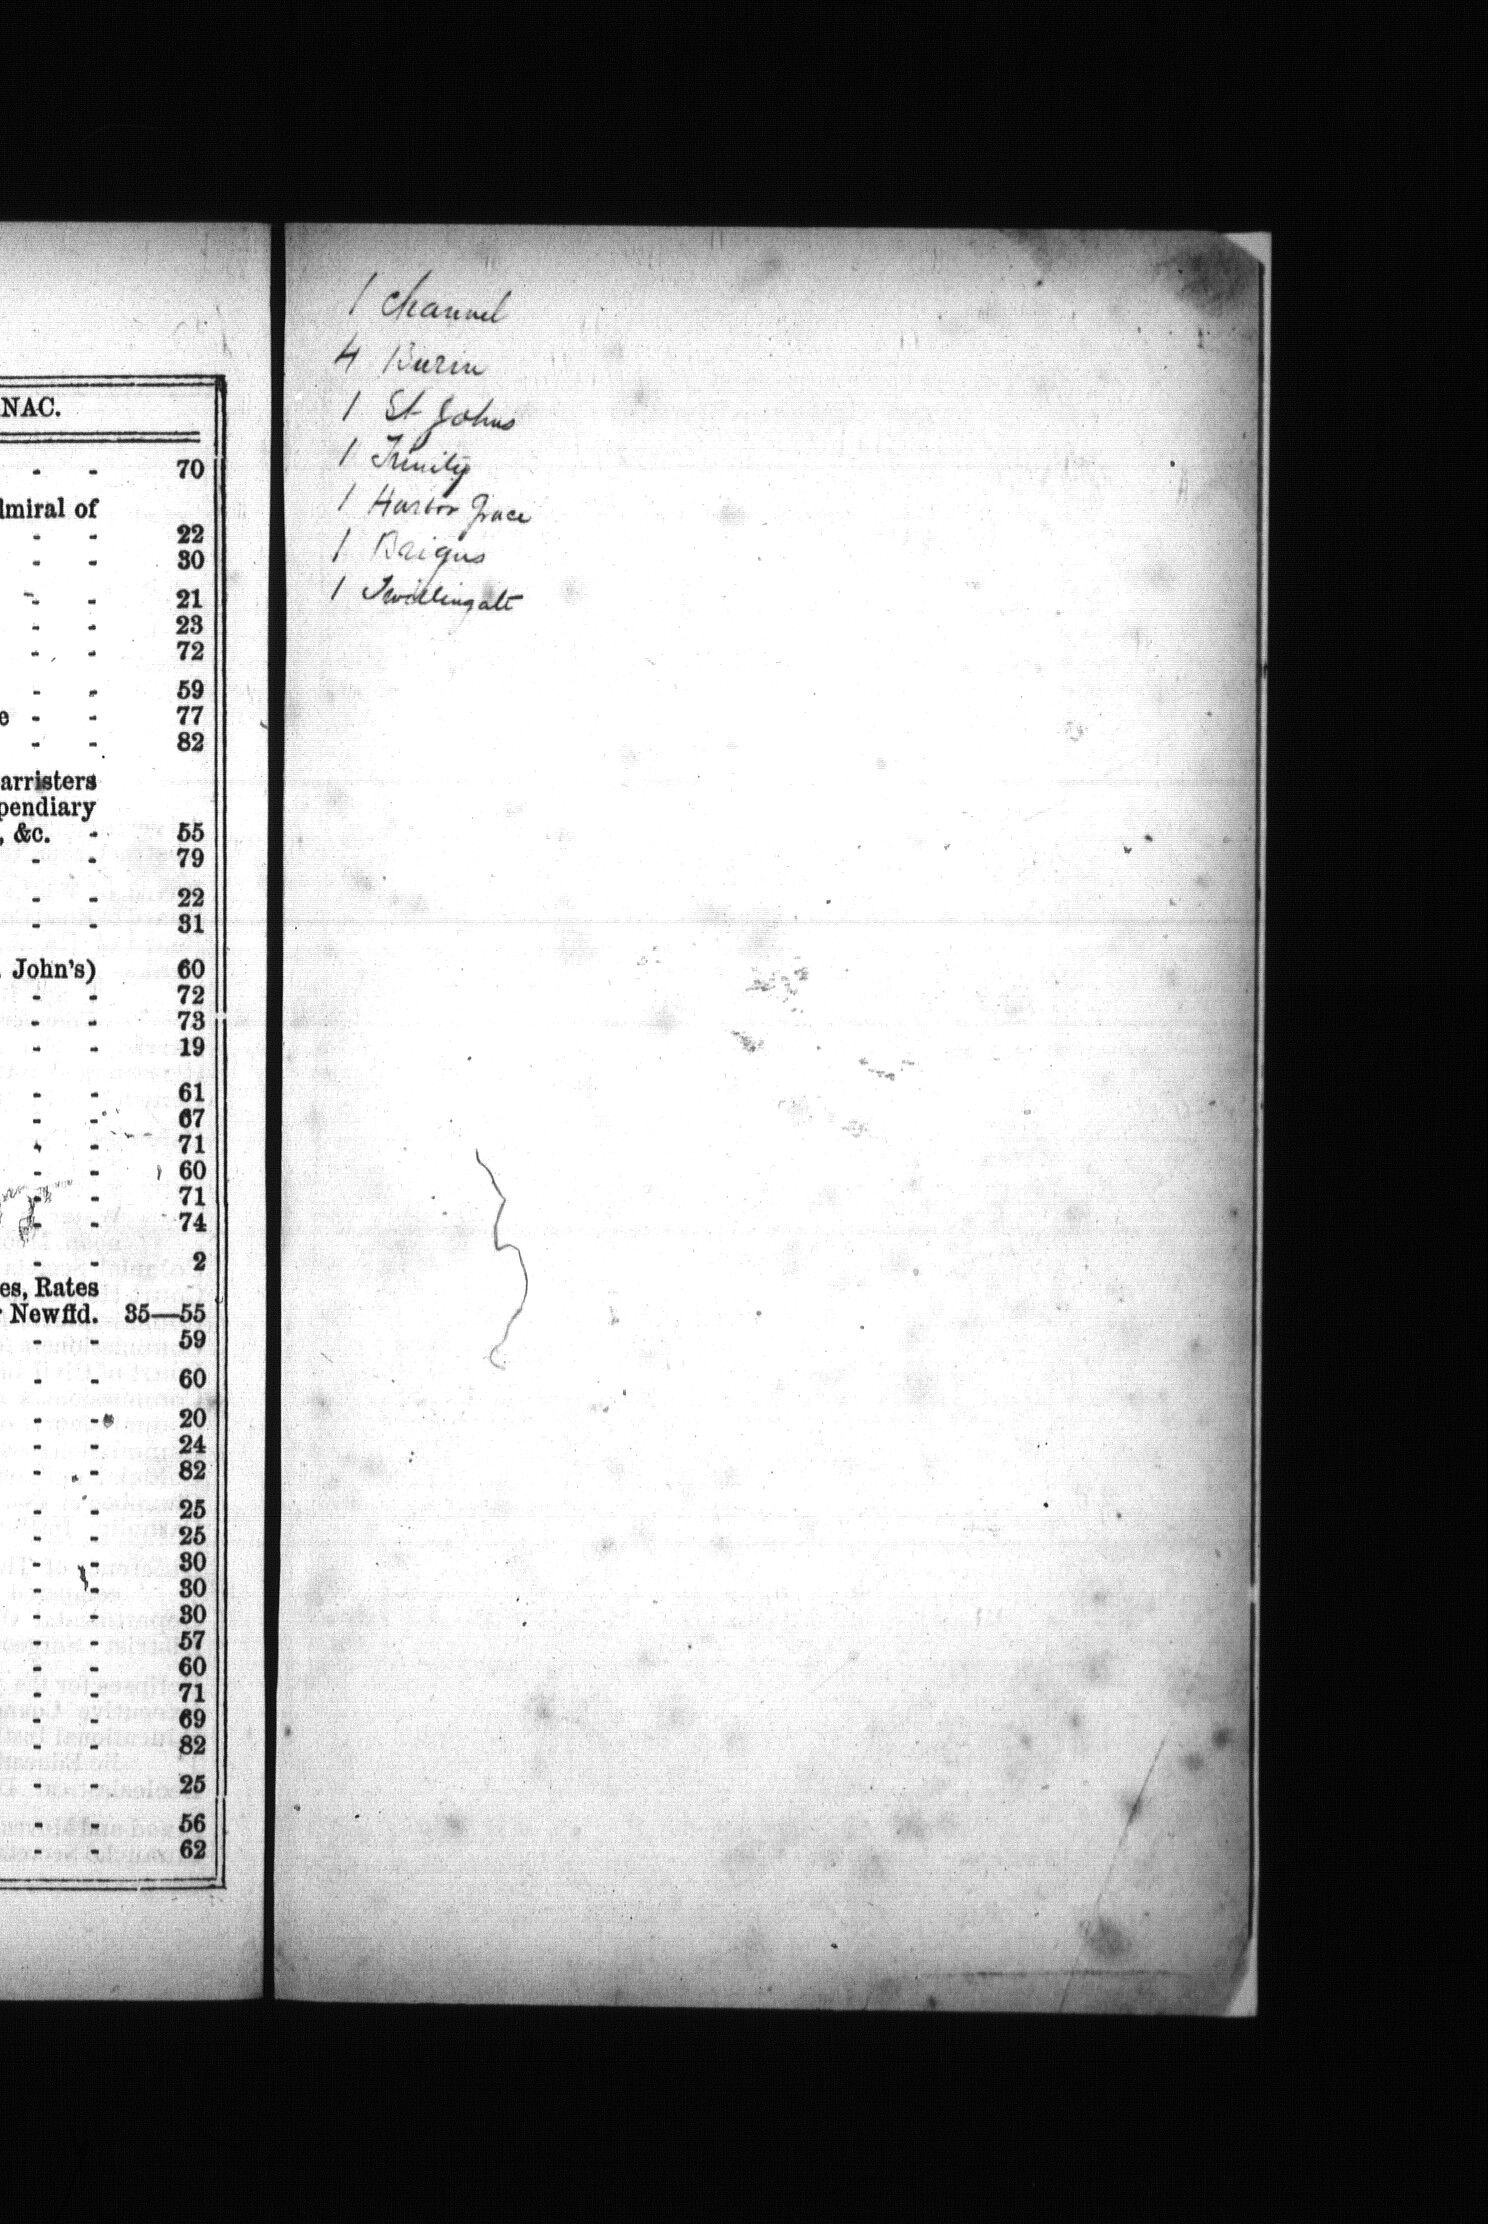 NAC.
- - 70
lmiral of
- - 22
- - 30
- - 21
- - 23
- - 72
- - 59
e - - 77
- - 82
arristers
pendiary
, &c. - 55
- - 79
- - 22
- - 31
John's) 60
- - 72
- - 73
- - 19
- - 61
- - 67
- - 71
- - 60
- - 71
- - 74
- - 2
es, Rates
r Newfld. 35—55
- - 59
- - 60
- - 20
- - 24
- - 82
- - 25
- - 25
- - 30
- - 30
- - 30
- - 57
- - 60
- - 71
- - 69
- - 82
- - 25
- - 56
- - 62
1 Channel
4 Burin
1 St Johns
1 Trinity
1 Harbor Grace
1 Brigus
1 Twillingate